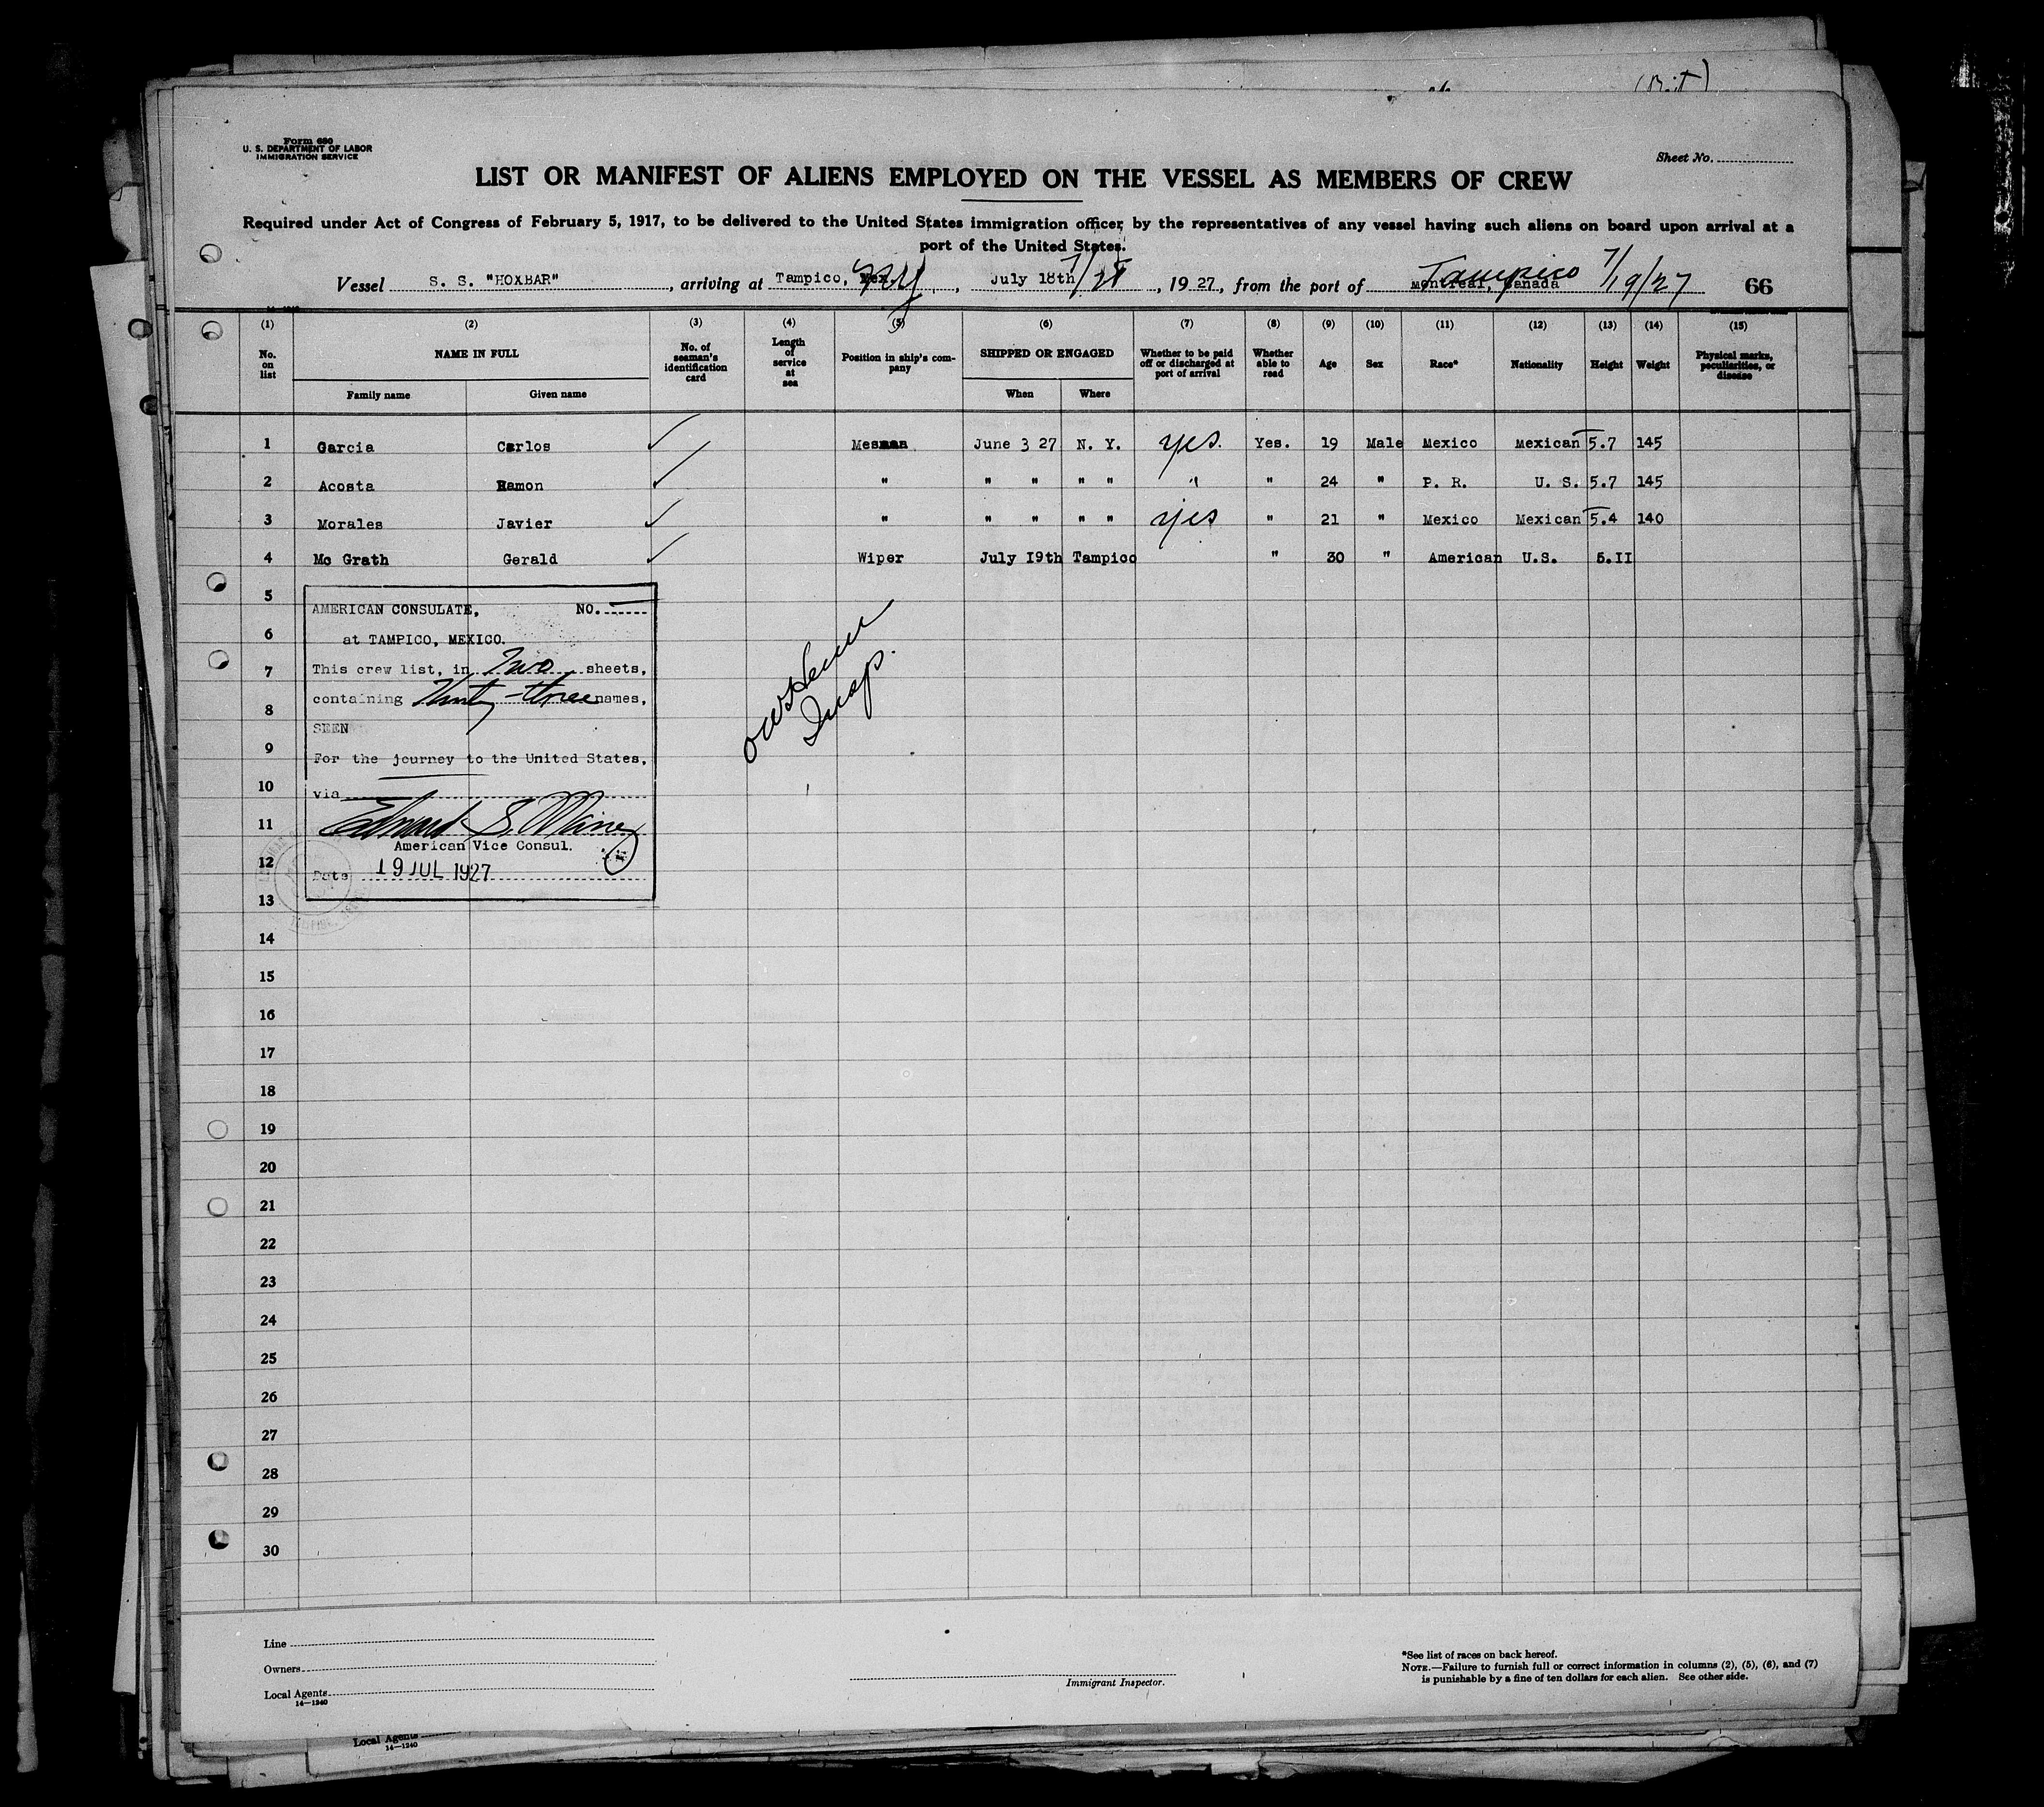 (Brit)
Form 680
U. S. DEPARTMENT OF LABOR
IMMIGRATION SERVICE
Sheet No.
LIST OR MANIFEST OF ALIENS EMPLOYED ON THE VESSEL AS MEMBERS OF CREW
Required under Act of Congress of February 5, 1917, to be delivered to the United States immigration officer by the representatives of any vessel having such aliens on board upon arrival at a
port of the United States.
Vessel S. S. "HOXBAR", arriving at Tampico, Mex. N.Y., July 18th 7/28, 1927, from the port of Montreal, Canada Tampico 7/19/27 66
(1) (2) (3) (4) (5) (6) (7) (8) (9) (10) (11) (12) (13) (14) (15)
No. on list NAME IN FULL No. of seaman's identification card Length of service at sea Position in ship's company SHIPPED OR ENGAGED Whether to be paid off or discharged at port of arrival Whether able to read Age Sex Race* Nationality Height Weight Physical marks, peculiarities, or disease
Family name Given name When Where
1 Garcia Carlos Mesman June 3 27 N. Y. yes. Yes. 19 Male Mexico Mexican 5.7 145
2 Acosta Ramon " " " " " " " 24 " P. R. U. S. 5.7 145
3 Morales Javier " " " " " yes " 21 " Mexico Mexican 5.4 140
4 Mc Grath Gerald Wiper July 19th Tampico " 30 " American U.S. 5.II
5
AMERICAN CONSULATE, NO.
6
at TAMPICO, MEXICO.
7
This crew list, in Two sheets,
containing Thirty-three names,
8
SEEN
9
For the journey to the United States,
10
via
11
Edward S. Maney
American Vice Consul.
12
Date 19 JUL 1927
13
Insp.
14
15
16
17
18
19
20
21
22
23
24
25
26
27
28
29
30
Line
Owners
Local Agents
14—1240
Immigrant Inspector.
*See list of races on back hereof.
NOTE.—Failure to furnish full or correct information in columns (2), (5), (6), and (7)
is punishable by a fine of ten dollars for each alien. See other side.
Local Agents
14—1240